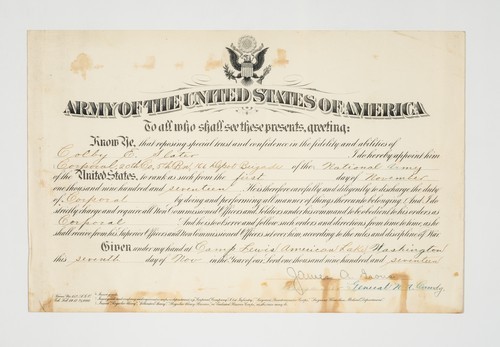 ARMY OF THE UNITED STATES OF AMERICA
To all who shall see these presents, greeting:
Know Ye, that reposing special trust and confidence in the fidelity and abilities of
Colby E. Slater I do hereby appoint him
Corporal, 20th Co. 5th Bn. 166 Depot Brigade of the National Army
of the United States, to rank as such from the first day of November
one thousand nine hundred and seventeen. He is therefore carefully and diligently to discharge the duty
of Corporal by doing and performing all manner of things thereunto belonging. And I do
strictly charge and require all Non Commissioned Officers and Soldiers under his command to be obedient to his orders as
Corporal And he is to observe and follow such orders and directions from time to time as he
shall receive from his Superior Officers and Non Commissioned Officers set over him, according to the rules and discipline of War.
Given under my hand at Camp Lewis American Lake, Washington
this seventh day of Nov in the year of our Lord one thousand nine hundred and seventeen
James A.
General N. A. Comdg.